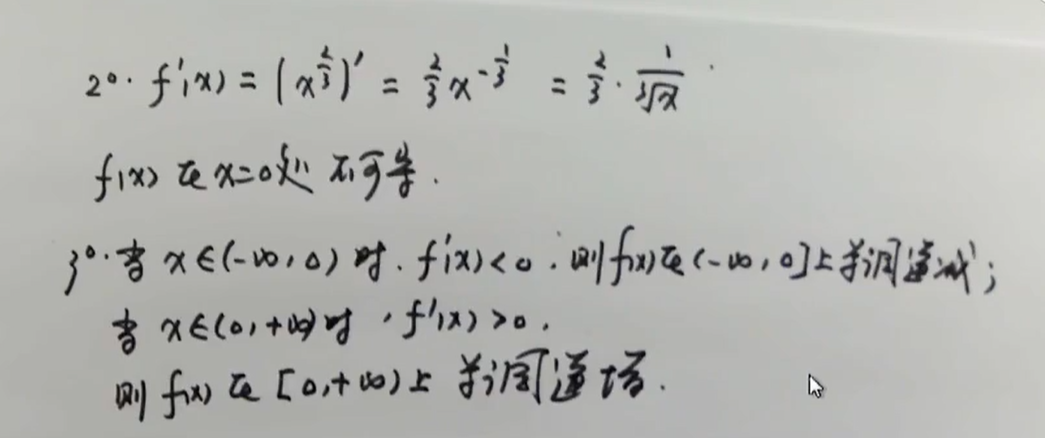 2°. f'(x) = (x^{2/3})' = 2/3 x^{-1/3} = 2/3 · 1/∛x .
f(x) 在 x=0处 不可导.
3°. 当 x∈(-∞,0) 时, f'(x)<0, 则 f(x) 在 (-∞,0] 上单调递减;
当 x∈(0,+∞) 时, f'(x)>0,
则 f(x) 在 [0,+∞) 上 单调递增.